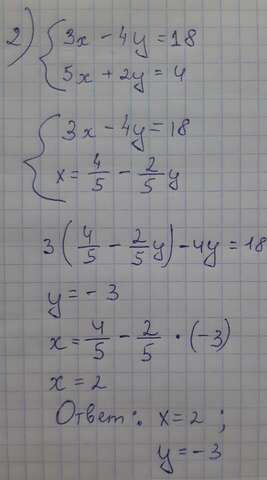 2) { 3x - 4y = 18
5x + 2y = 4
{ 3x - 4y = 18
x = 4/5 - 2/5 y
3 (4/5 - 2/5 y) - 4y = 18
y = - 3
x = 4/5 - 2/5 · (-3)
x = 2
Ответ: x = 2 ;
y = -3